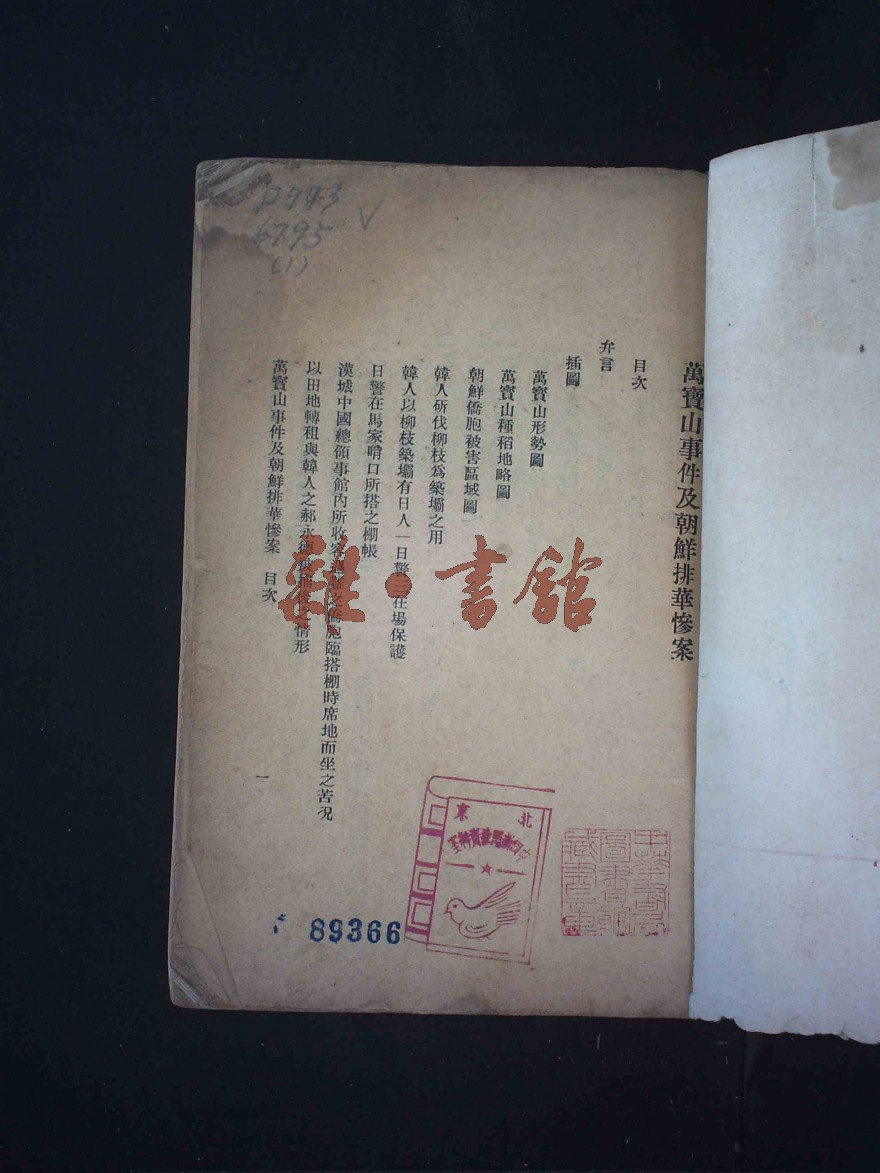 萬寶山事件及朝鮮排華慘案
目次
弁言
插圖
萬寶山形勢圖
萬寶山種稻地略圖
朝鮮僑胞被害區域圖
韓人斫伐柳枝爲築壩之用
韓人以柳枝築壩有日人一日警三在場保護
日警在馬家哨口所搭之棚帳
漢城中國總領事館內所收容避難之僑胞臨搭棚時席地而坐之苦況
以田地轉租與韓人之郝永德被捕後之情形
萬寶山事件及朝鮮排華慘案 目次
一
雜·書館
P943
6795
(1)
89366
北東